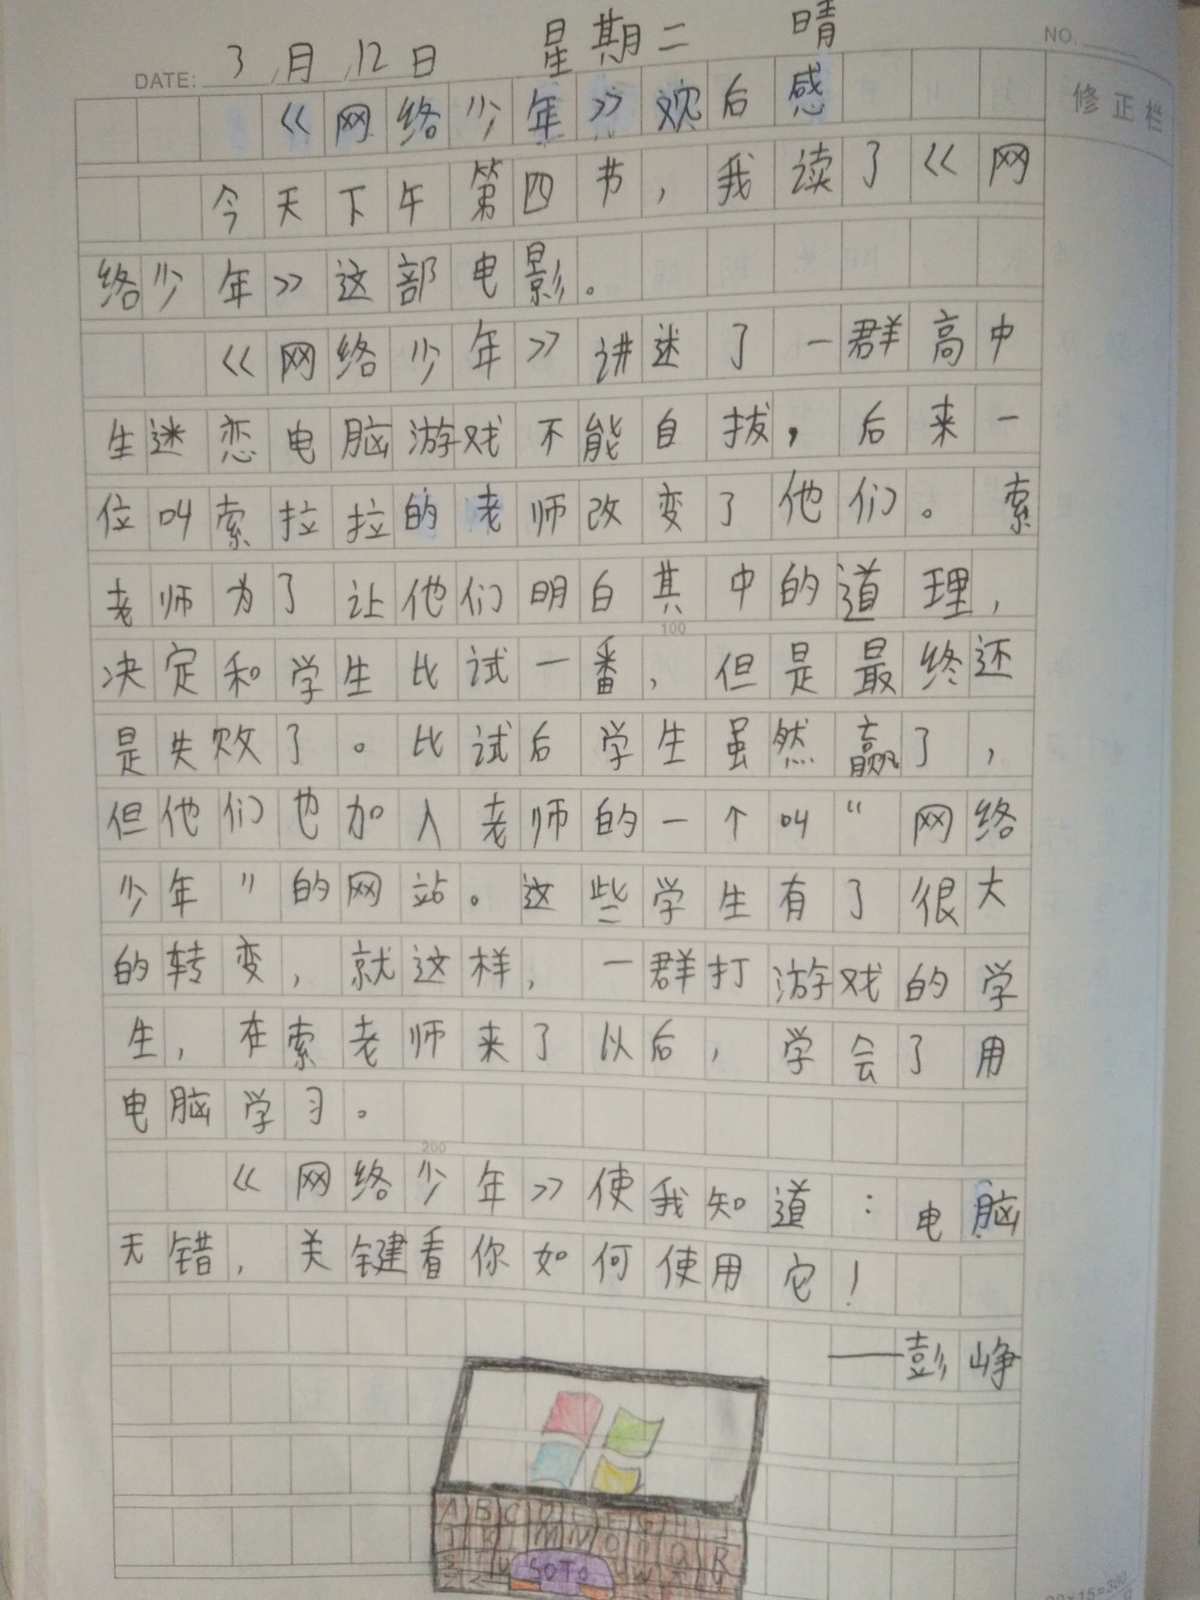 DATE: 3月12日 星期二 晴
NO.
修正栏
《网络少年》观后感
今天下午第四节，我读了《网
络少年》这部电影。
《网络少年》讲述了一群高中
生迷恋电脑游戏不能自拔，后来一
位叫索拉拉的老师改变了他们。索
老师为了让他们明白其中的道理，
100
决定和学生比试一番，但是最终还
是失败了。比试后学生虽然赢了，
但他们也加入老师的一个叫“网络
少年”的网站。这些学生有了很大
的转变，就这样，一群打游戏的学
生，在索老师来了以后，学会了用
电脑学习。
200
《网络少年》使我知道：电脑
无错，关键看你如何使用它！
——彭峥
SOTO